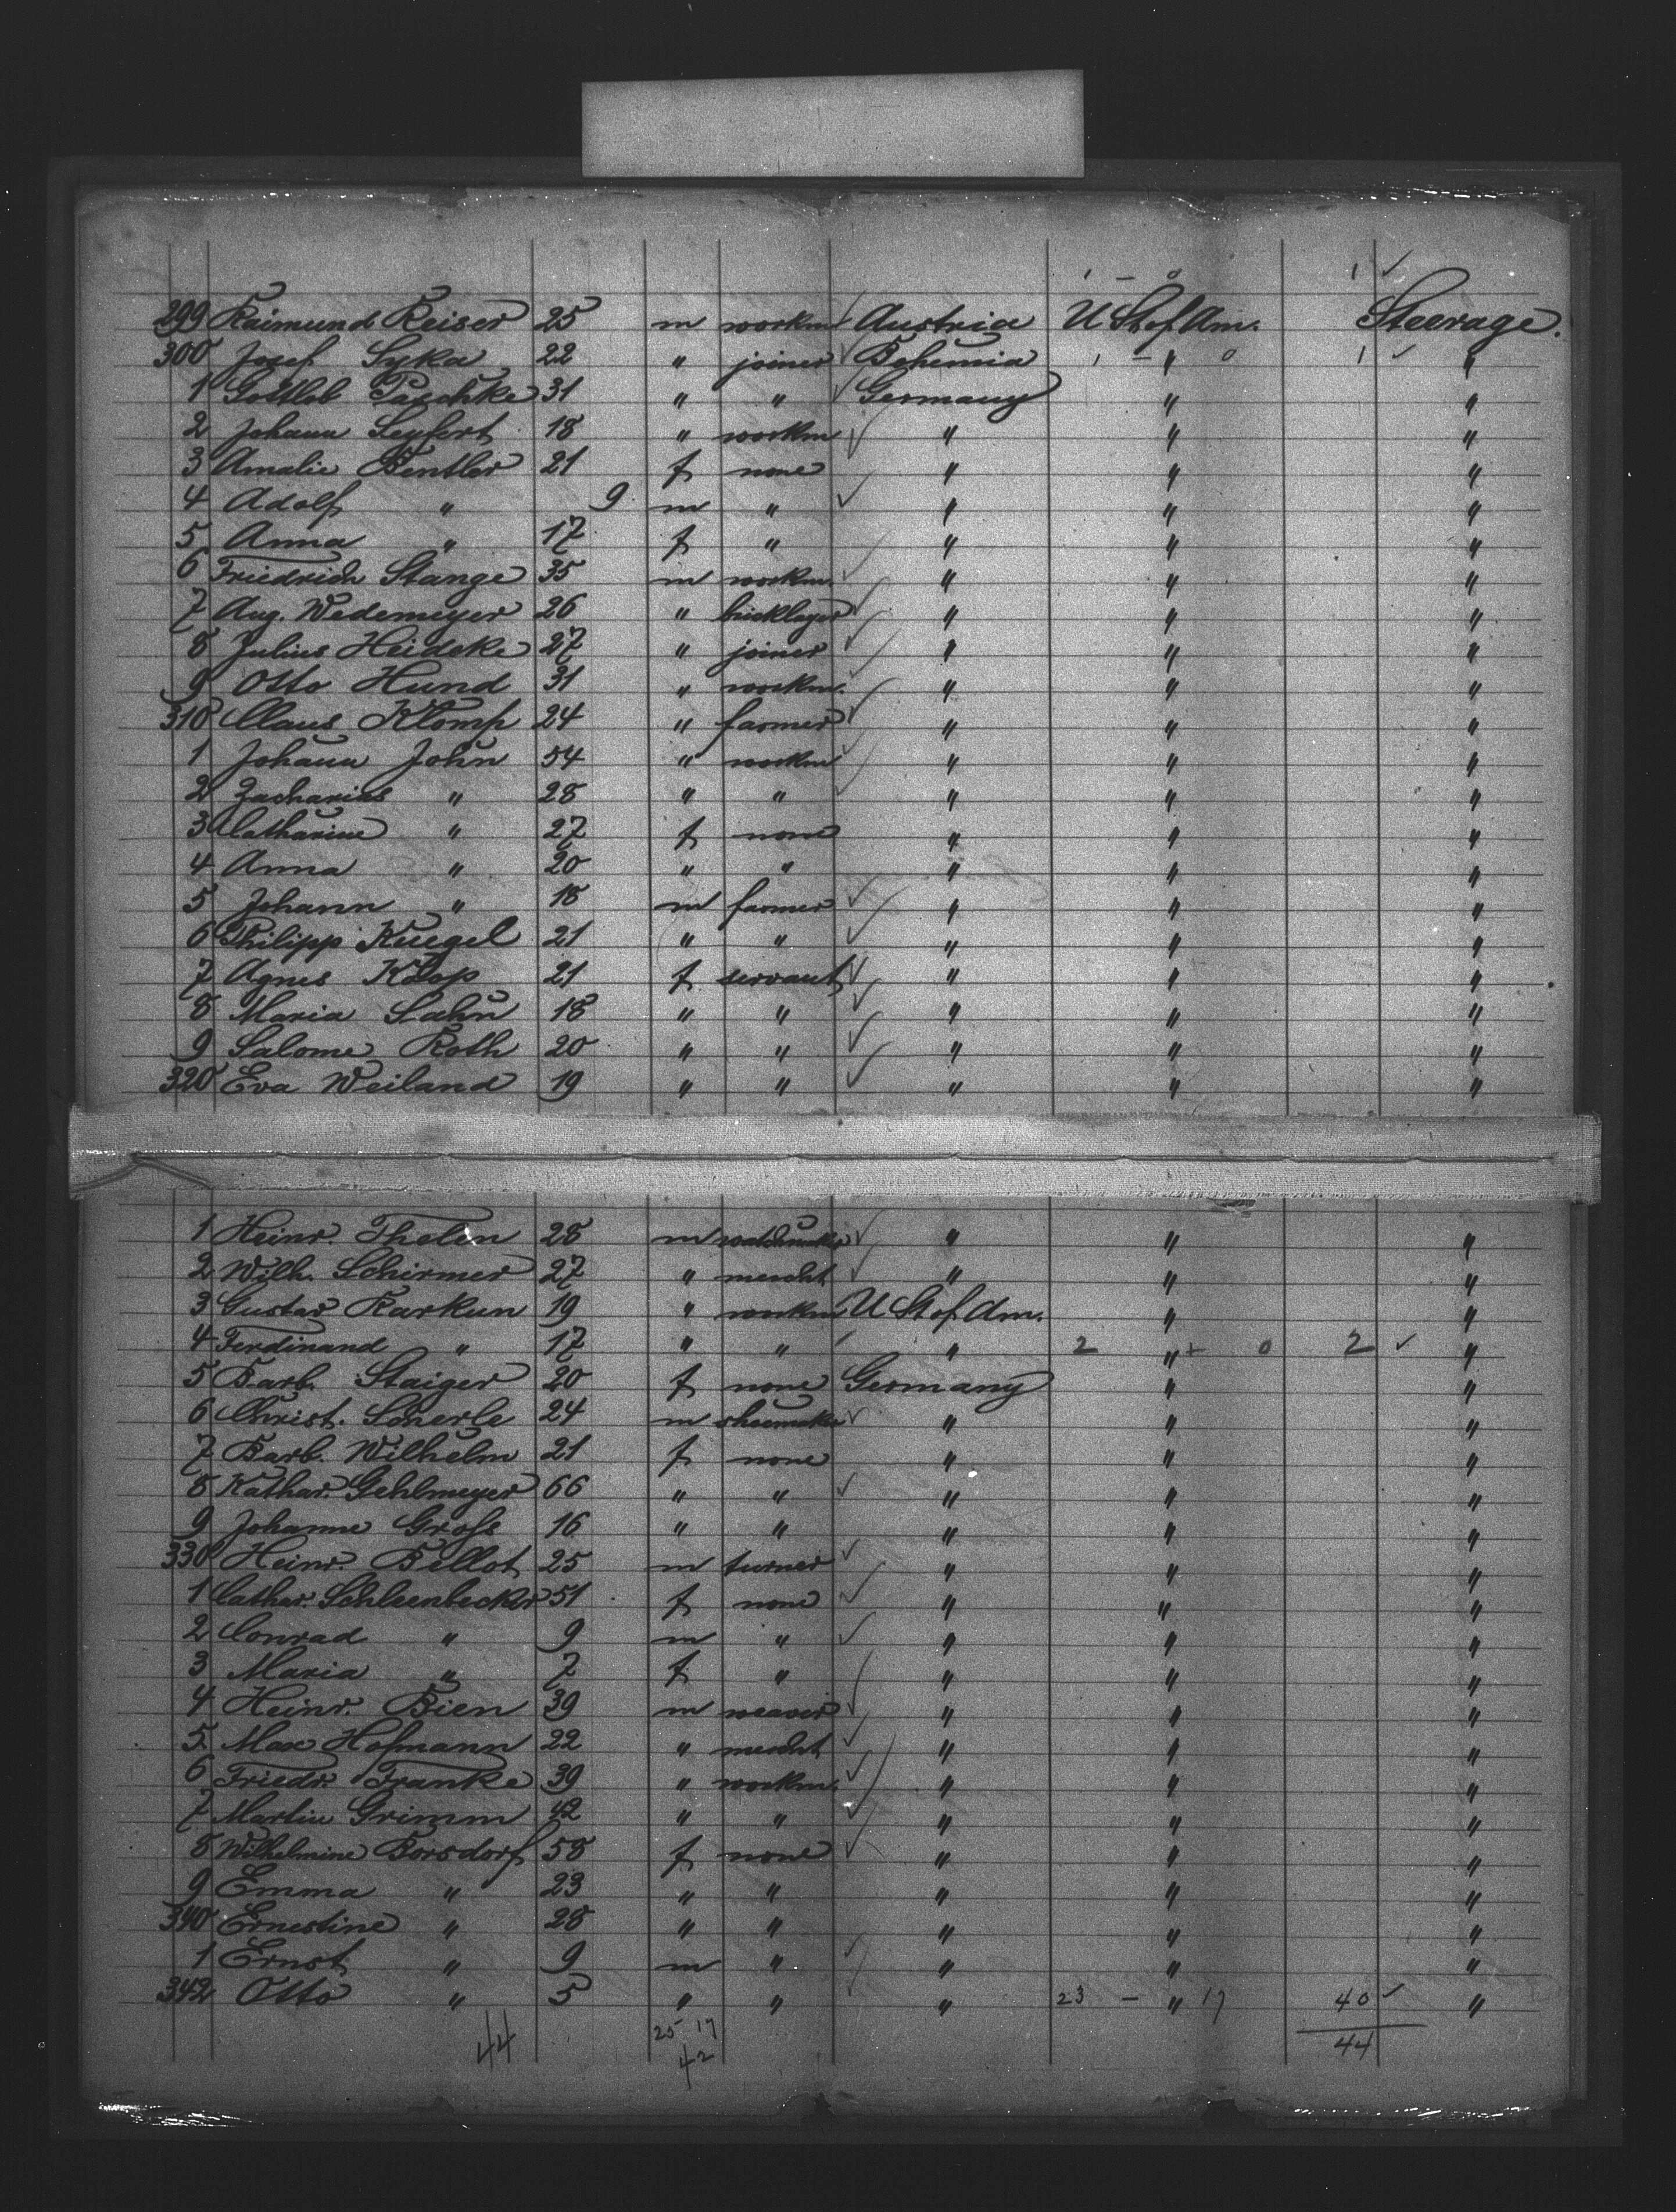 1 – 0 1 ✓
299 Raimund Reiser 25 m workm ✓ Austria U St of Am. Steerage.
300 Josef Syka 22 " joiner ✓ Bohemia 1 – " 0 1 ✓ "
1 Gottlob Paschke 31 " " ✓ Germany " "
2 Johann Seyfert 18 " workm ✓ " " "
3 Amalie Bentler 21 f none " " "
4 Adolf " 9 m " ✓ " " "
5 Anna " 17 f " " " "
6 Friedrich Stange 35 m workm. ✓ " " "
7 Aug. Wedemeyer 26 " bricklayer ✓ " " "
8 Julius Heideke 27 " joiner ✓ " " "
9 Otto Hund 31 " workm. ✓ " " "
310 Claus Klomp 24 " farmer ✓ " " "
1 Johann John 54 " workm ✓ " " "
2 Zacharias " 28 " " ✓ " " "
3 Catharine " 27 f none " " "
4 Anna " 20 " " " " "
5 Johann " 18 m farmer ✓ " " "
6 Philipp Kuegel 21 " " ✓ " " "
7 Agnes Klop 21 f servant ✓ " " "
8 Maria Sahn 18 " " ✓ " " "
9 Salome Roth 20 " " ✓ " " "
320 Eva Weiland 19 " " ✓ " " "
1 Heinr. Thelen 28 m watchmaker ✓ " " "
2 Wilh. Schirmer 27 " mercht ✓ " " "
3 Gustav Karkun 19 " workm U St of Am. " "
4 Ferdinand " 17 " " ✓ " 2 " + 0 2 ✓ "
5 Barb. Staiger 20 f none Germany " "
6 Christ. Scherle 24 m shoemaker ✓ " " "
7 Barb. Wilhelm 21 f none " " "
8 Kathar. Gehlmeyer 66 " " ✓ " " "
9 Johanne Groß 16 " " " " "
330 Heinr. Bellot 25 m turner ✓ " " "
1 Cathar. Schleenbecker 51 f none ✓ " " "
2 Conrad " 9 m " ✓ " " "
3 Maria " 7 f " " " "
4 Heinr. Bien 39 m weaver ✓ " " "
5. Max Hofmann 22 " mercht ✓ " " "
6 Friedr. Franke 39 " workm. ✓ " " "
7 Martin Grimm 42 " " ✓ " " "
8 Wilhelmine Borsdorf 58 f none ✓ " " "
9 Emma " 23 " " " " "
340 Ernestine " 28 " " " " "
1 Ernst " 9 m " ✓ " " "
342 Otto " 5 " " ✓ " 23 – " 17 40 ✓ "
44 25 17 44
42